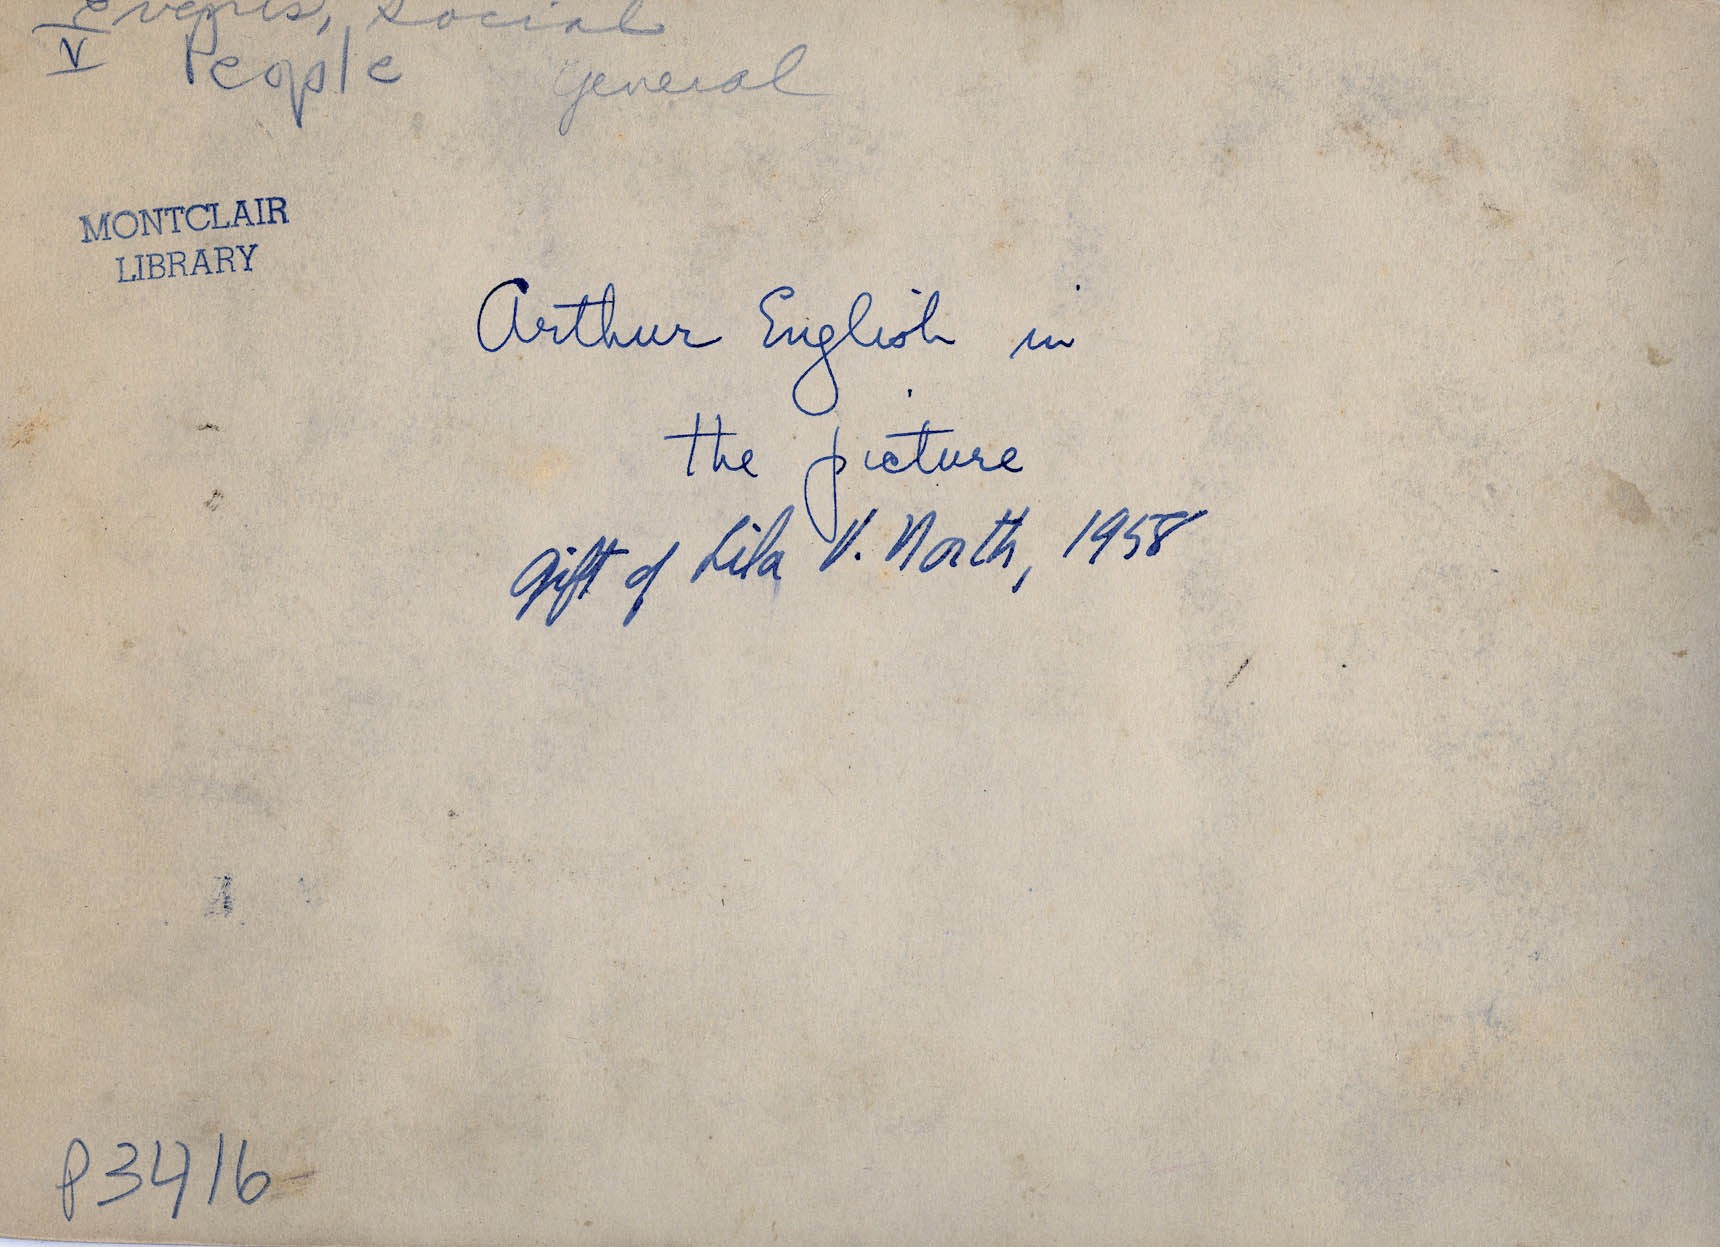 Events, Social
V People General
MONTCLAIR
LIBRARY
Arthur English in
the picture
Gift of Lila V. North, 1958
P3416